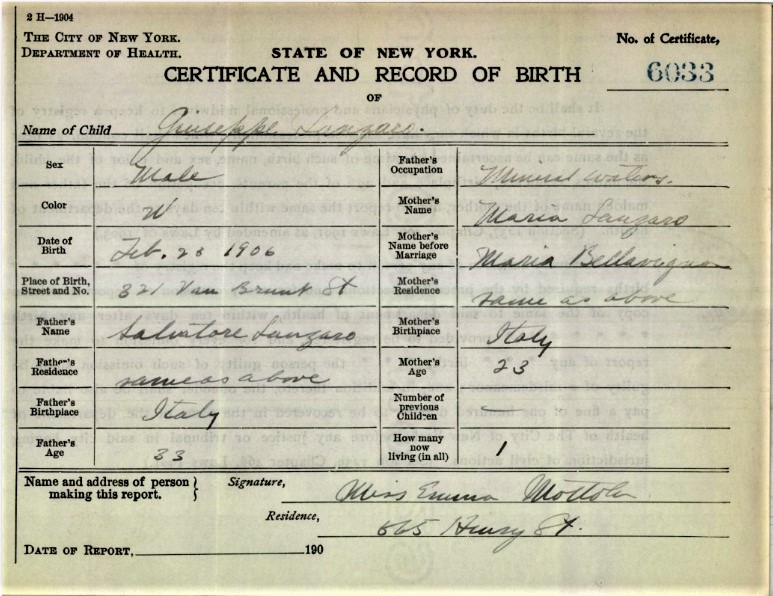 2 H—1904
THE CITY OF NEW YORK.
DEPARTMENT OF HEALTH.
STATE OF NEW YORK.
No. of Certificate,
CERTIFICATE AND RECORD OF BIRTH
6033
OF
Name of Child Giuseppe Lanzaro.
Sex Male
Father's Occupation Mineral waters.
Color W
Mother's Name Maria Lanzaro
Date of Birth Feb. 23 1906
Mother's Name before Marriage Maria
Place of Birth, Street and No. 321 Van Brunt St
Mother's Residence same as above
Father's Name Salvatore Lanzaro
Mother's Birthplace Italy
Father's Residence same as above
Mother's Age 23
Father's Birthplace Italy
Number of previous Children —
Father's Age 33
How many now living (in all) 1
Name and address of person making this report.
Signature, Miss Emma Mottola
Residence, 565 Henry St.
DATE OF REPORT, 190